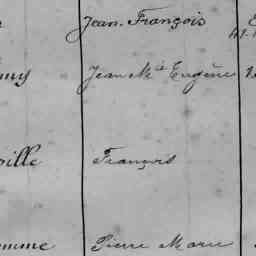 Jean-François
my Jean Mie Eugène
ille François
omme Pierre Marie